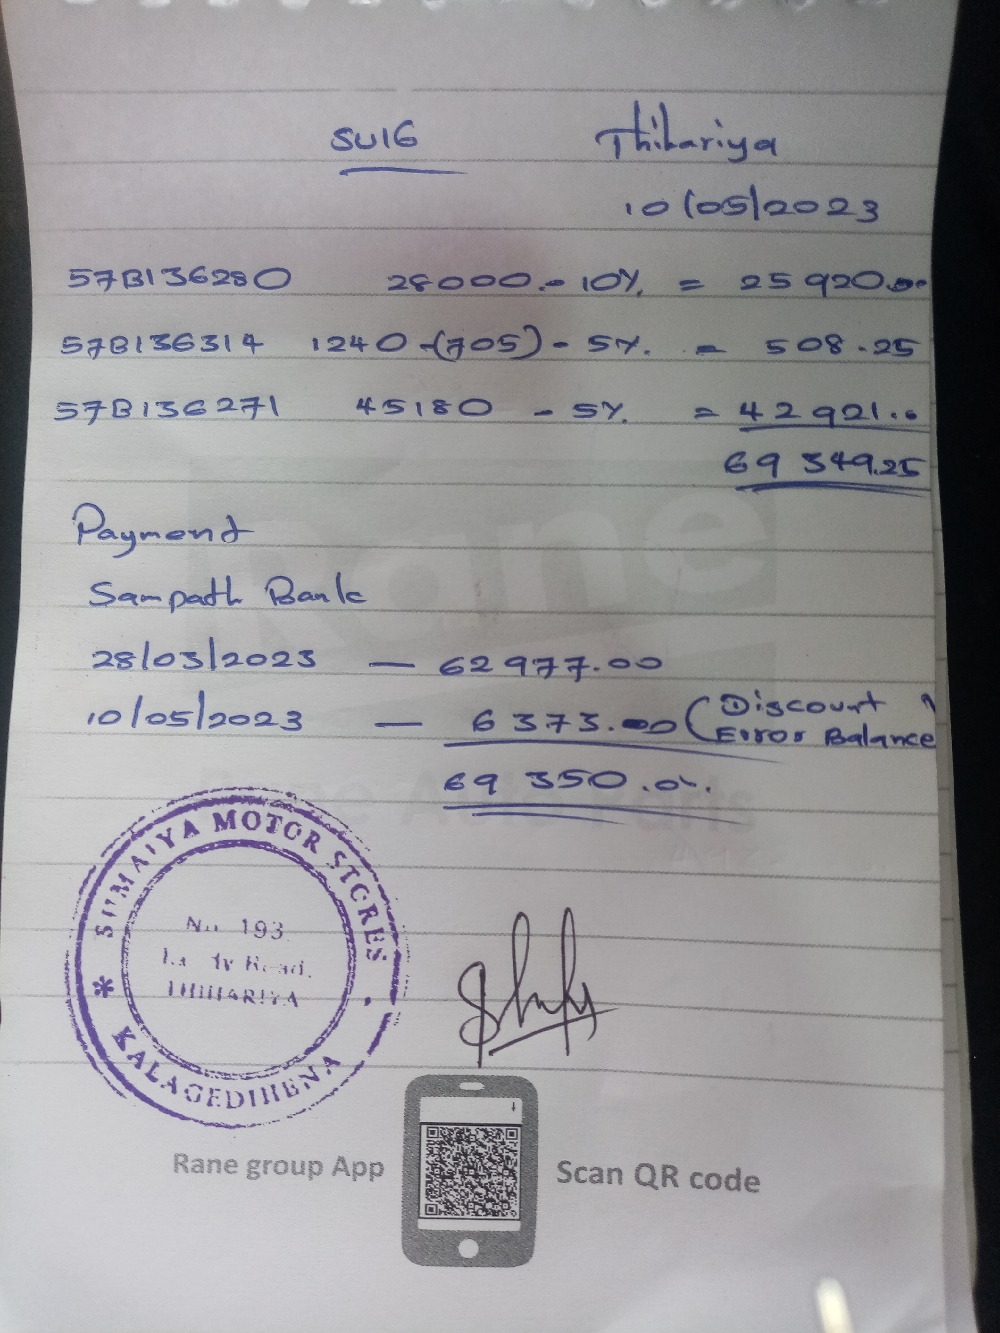 SU16 Thihariya
10/05/2023
57B136280 28000.- 10% = 25 920.00
57B136314 1240 -(705) - 5% = 508.25
57B136271 45180 - 5% = 42 921.0
69 349.25
Payment
Sampath Bank
28/03/2023 — 62977.00
10/05/2023 — 6373.00 (Discount
Error Balance)
69 350.00
Rane
Rane Auto Parts
SUMAIYA MOTOR STORES
No. 193.
Road.
THIHARIYA
* KALAGEDIHENA
Rane group App
Scan QR code